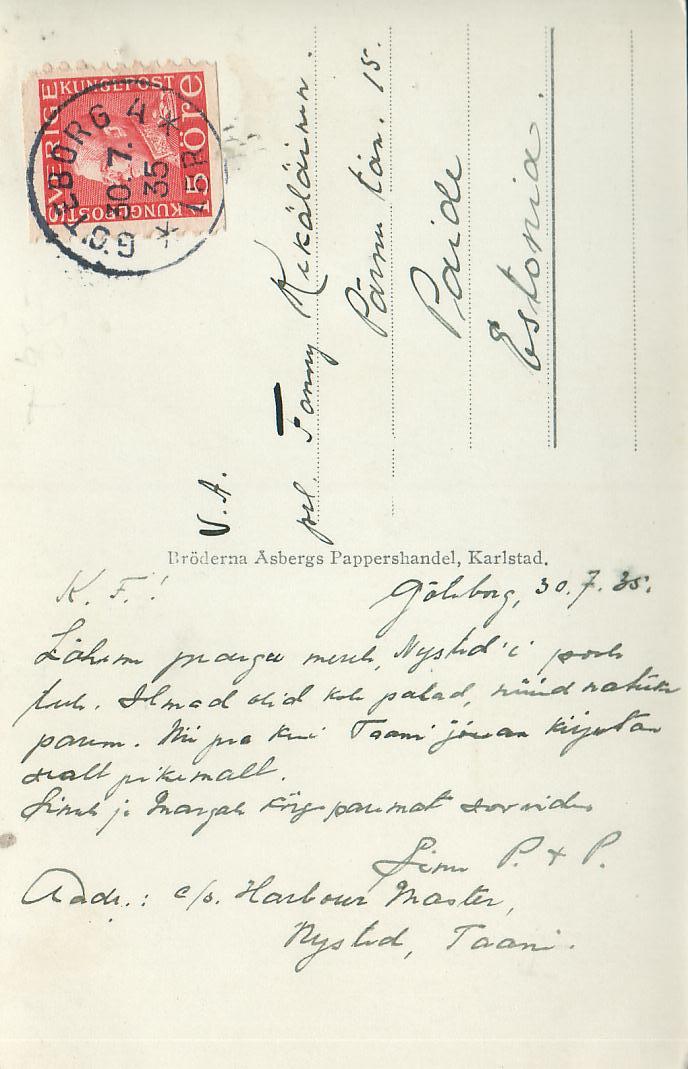 SVERIGE
KUNGLPOST
15 ÖRE
KUNGLPOST
GÖTEBORG 4
30.7.
35
V. A.
prl. Fanny Kekäläinen.
Pärnu tän. 15.
Paide
Estonia.
Bröderna Åsbergs Pappershandel, Karlstad.
K. F.!
Göteborg, 30.7.35.
Läheme praegu merele, Nysted'i poole
Ilmad olid kole palad, nüüd natuke
parem. Nii pea kui Taani jõuan kirjutan
sealt pikemalt.
Sinule ja kõige paremat soovides
Sinu P. + P.
Addr.: c/o. Harbour Master,
Nysted, Taani.